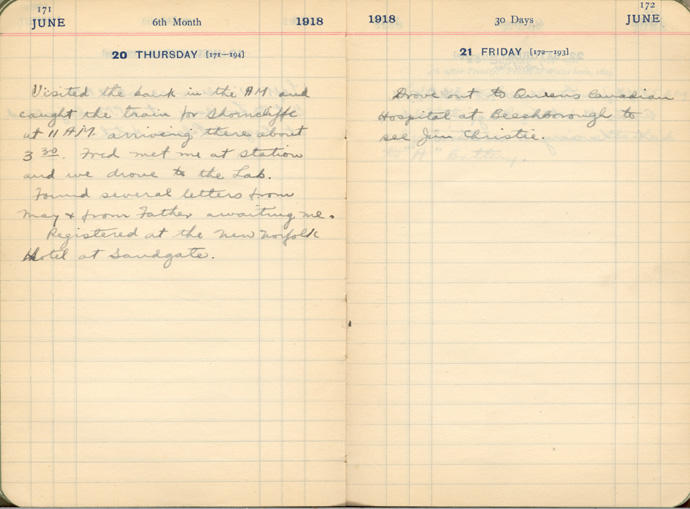 171
JUNE
6th Month
1918
20 THURSDAY [171—194]
Visited the bank in the AM and
caught the train for Shorncliffe
at 11 A.M. arriveing there about
3 30. Fred met me at station
and we drove to the Lab.
Found several letters from
May & from Father awaiting me.
Registered at the New Norfolk
Hotel at Sandgate.
1918
30 Days
172
JUNE
21 FRIDAY [172—193]
Drove out to Queens Canadian
Hospital at Beechborough to
see Jim Christie.